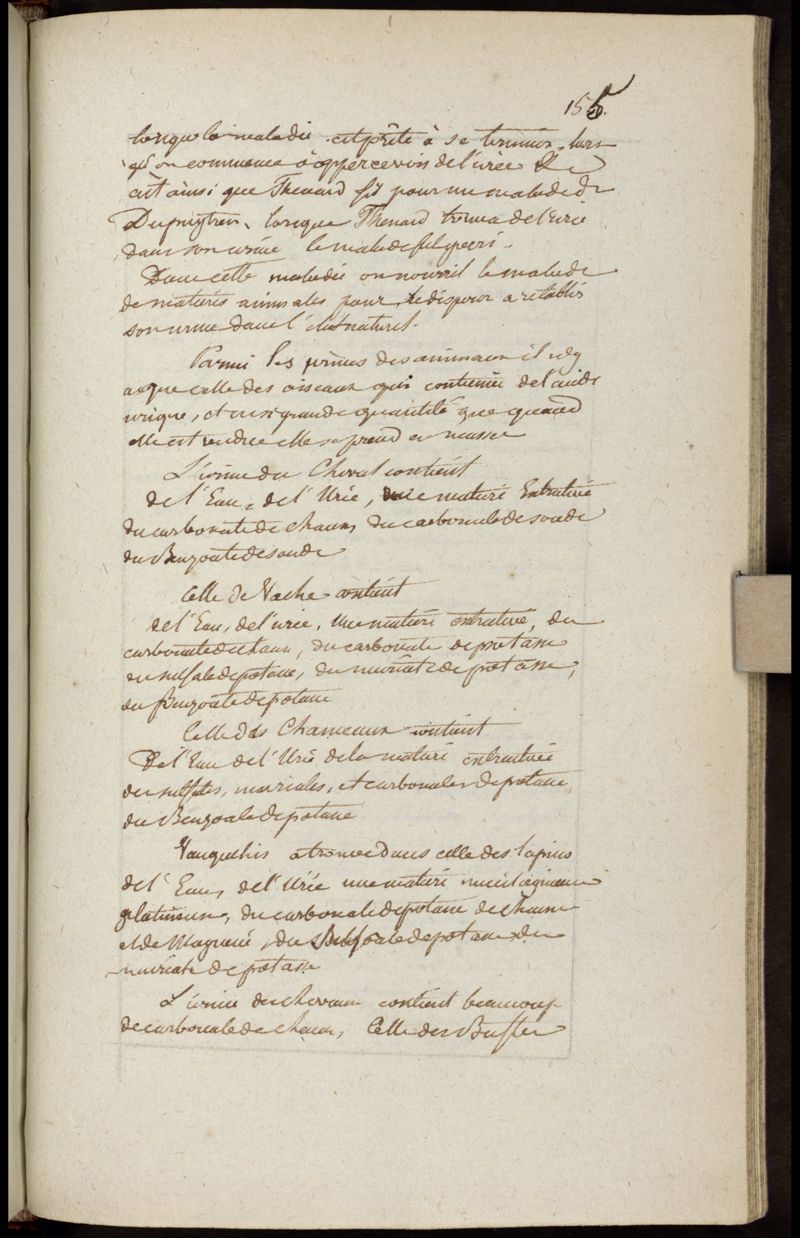 155.
lorsque la maladie est prête à se terminer, lors
qu'on commence à appercevoir de l'urée &c
c'est ainsi que Thenard fit pour un malade de
Dupuytren, lorsque Thenard trouva de l'urée
dans son urine le malade fut gueri.
Dans cette maladie on nourrit le malade
de matieres animales pour le disposer a retablir
son urine dans l'état naturel.
Parmi les urines des animaux il n'y
a que celle des oiseaux qui contienne de l'acide
urique, et en si grande quantité que quand
elle est rendue elle se prend en masse
L'urine du Cheval contient
de l'Eau, de l'Urée, une matiere Extractive
du carbonate de chaux, du carbonate de soude
du Benzoate de soude
Celle de Vache contient
de l'Eau, de l'urée, une matiere extractive, du
carbonate de chaux, du carbonate de potasse
du sulfate de potasse, du muriate de potasse,
du Benzoate de potasse
Celle des Chameaux contient
De l'Eau de l'Urée de la matiere extractive
des sulfates, muriates, et carbonates de potasse,
du Benzoate de potasse
Vauquelin a trouvé dans celle des lapins
de l'Eau, de l'Urée une matiere mucilagineuse
gelatineuse, du carbonate de potasse de chaux
et de Magnesie, du Sulfate de potasse, du
muriate de potasse
L'urine des chevaux contient beaucoup
de carbonate de chaux, Celle des